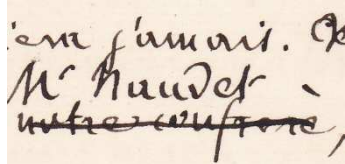 jamais.
Mr Naudet
notre confrère,